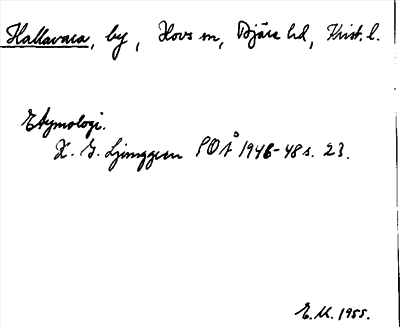 Hallavara, by, Hovs sn, Bjäre hd, Krist. l.
Etymologi.
K. G. Ljunggren SOÅ 1946-48 s. 23.
E.U. 1955.